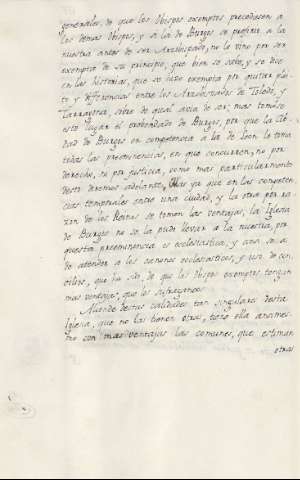 generales, de que los Obispos exemptos precediesen a
los demas Obispos, y si la de Burgos se prefirió a la
nuestra antes de ser Arzobispado, no le vino por ser
exempta de su principio, que bien se sabe, y se dice
en las historias, que se hizo exempta por quitar plei-
to y diferencias entre los Arzobispados de Toledo, y
Tarragona, sobre de qual avia de ser, mas tomóse
este lugar el Arzobispado de Burgos, por que la Ciu-
dad de Burgos en competencia a la de Leon le toma
todas las preeminencias, en que concurren, no por
derecho, ni por justicia, como mas particularmente
desto diremos adelante. Mas ya que en las competen-
cias temporales entre una ciudad, y la otra por ra-
zon de los Reinos se tomen las ventajas, la Iglesia
de Burgos no se la pudo llevar a la nuestra, por
questa preeminencia es eclesiastica, y ansi se a
de atender a los canones eclesiasticos, y uso de con-
cilios, que ha sido, de que los Obispos exemptos tengan
mas ventaja, que los sufraganeos.
Aliende destas calidades tan singulares desta
Iglesia, que no las tienen otras, tiene ella ansimes-
mo con mas ventajas las comunes, que estiman
otras